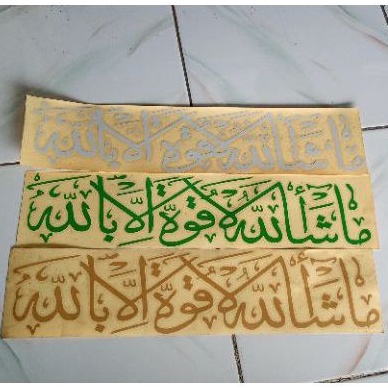 ما شاء الله لا قوة إلا بالله
ما شاء الله لا قوة إلا بالله
ما شاء الله لا قوة إلا بالله